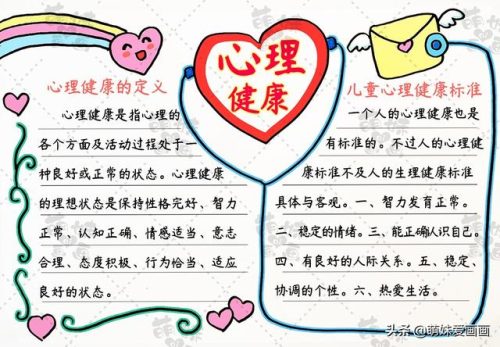 心理
健康
心理健康的定义
心理健康是指心理的
各个方面及活动过程处于一
种良好或正常的状态。心理健康
的理想状态是保持性格完好、智力
正常、认知正确、情感适当、意志
合理、态度积极、行为恰当、适应
良好的状态。
儿童心理健康标准
一个人的心理健康也是
有标准的。不过人的心理健
康标准不及人的生理健康标准
具体与客观。一、智力发育正常。
二、稳定的情绪。三、能正确认识自己。
四、有良好的人际关系。五、稳定、
协调的个性。六、热爱生活。
头条@萌妹爱画画